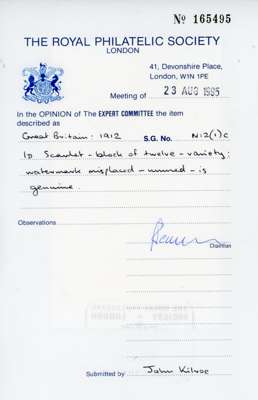 No 165495
THE ROYAL PHILATELIC SOCIETY
LONDON
41, Devonshire Place,
London, W1N 1PE
Meeting of 23 AUG 1995
In the OPINION of The EXPERT COMMITTEE the item
described as
Great Britain: 1912 S.G. No. N12(1)c
1D Scarlet - block of twelve - variety:
watermark misplaced - unused - is
genuine.
Observations
Chairman
Submitted by John Kilroe